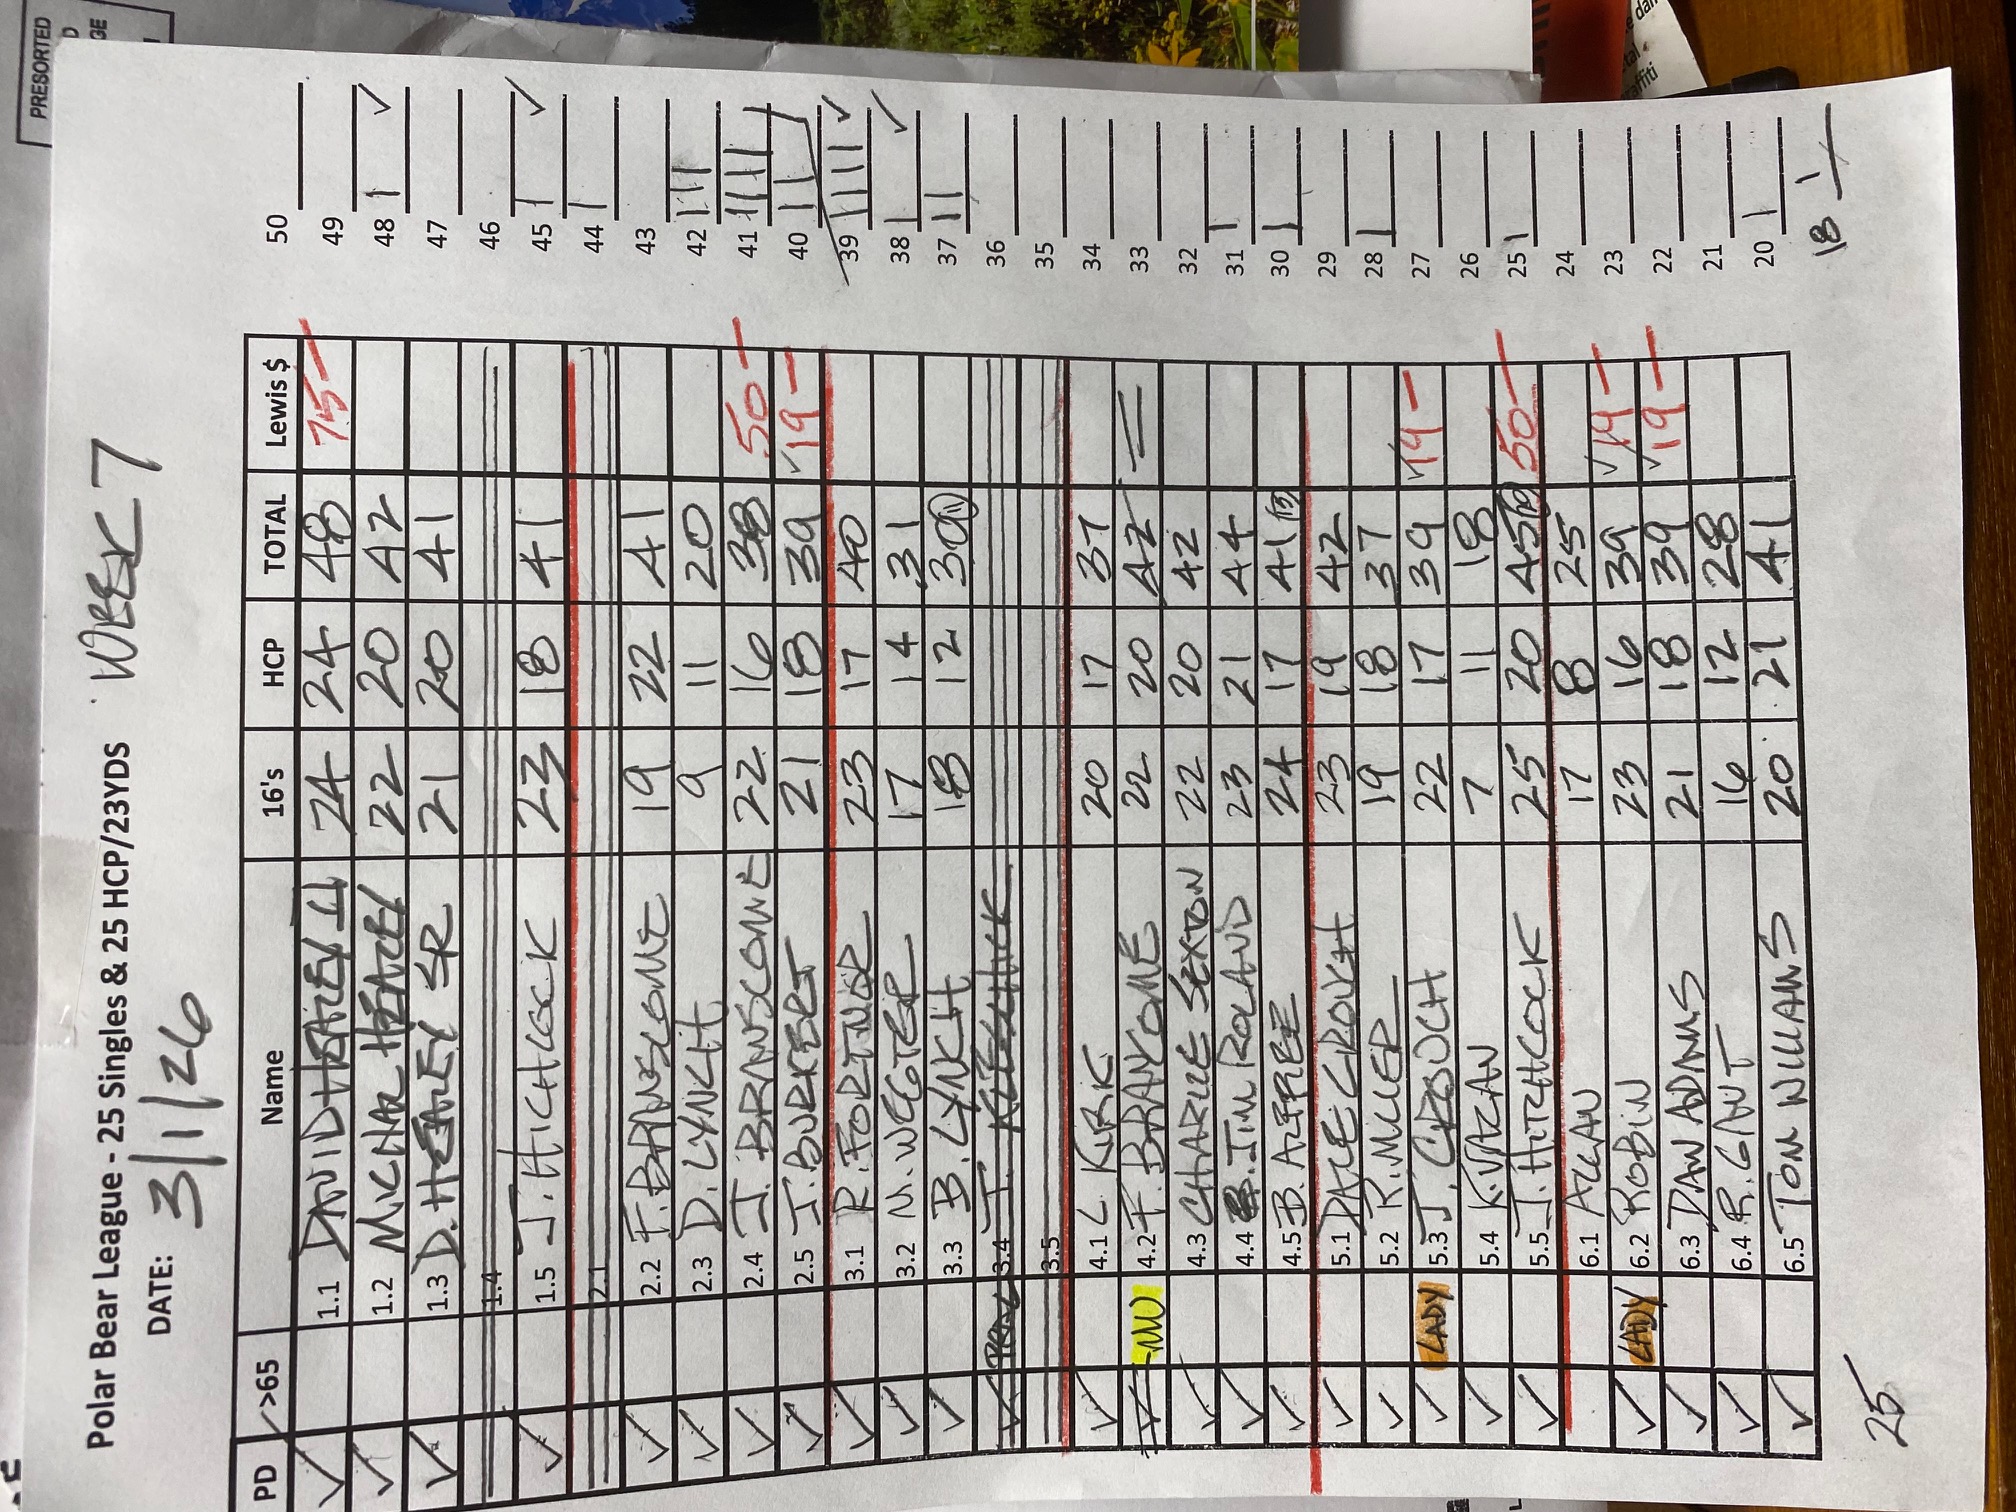 PRESORTED
Polar Bear League - 25 Singles & 25 HCP/23YDS WEEK 7
DATE: 3/1/26
PD ✓>65 Name 16's HCP TOTAL Lewis $
✓ 1.1 DAVID HEAREY II 24 24 48 75-
✓ 1.2 MICHAL HEAREY 22 20 42
✓ 1.3 D. HEAREY SR 21 20 41
1.4
✓ 1.5 J. HICHCOCK 23 18 41
2.1
✓ 2.2 F. BRANSCOME 19 22 41
✓ 2.3 D. LYNCH 9 11 20
✓ 2.4 J. BRANSCOME 22 16 38 50-
✓ 2.5 J. BURKERT 21 18 39 ✓19-
✓ 3.1 R. FORTNER 23 17 40
✓ 3.2 M. WEGTER 17 14 31
✓ 3.3 B. LYNCH 18 12 30 (11)
✓ 3.4 J.
3.5
✓ 4.1 L. KIRK 20 17 37
✓ NMU 4.2 F. BRANSOME 22 20 42 =
✓ 4.3 CHARLIE SEXTON 22 20 42
✓ 4.4 JIM ROLAND 23 21 44
✓ 4.5 B. ALFREE 24 17 41 (13)
✓ 5.1 DALE CROUCH 23 19 42
✓ 5.2 R. MILLER 19 18 37
✓ LADY 5.3 J. CROUCH 22 17 39 ✓19-
✓ 5.4 K. VAZAN 7 11 18
✓ 5.5 J. HITCHCOCK 25 20 45 50-
6.1 ALLAN 17 8 25
✓ LADY 6.2 ROBIN 23 16 39 ✓19-
✓ 6.3 DAN ADAMS 21 18 39 ✓19-
✓ 6.4 R. GANT 16 12 28
✓ 6.5 TOM WILLIAMS 20 21 41
25
50
49
48 | ✓
47
46
45 | ✓
44 |
43
42 |||
41 ||||
40 ||
39 |||| ✓
38 | ✓
37 ||
36
35
34
33
32
31 |
30 |
29
28 |
27
26
25 |
24
23
22
21
20 |
18 |